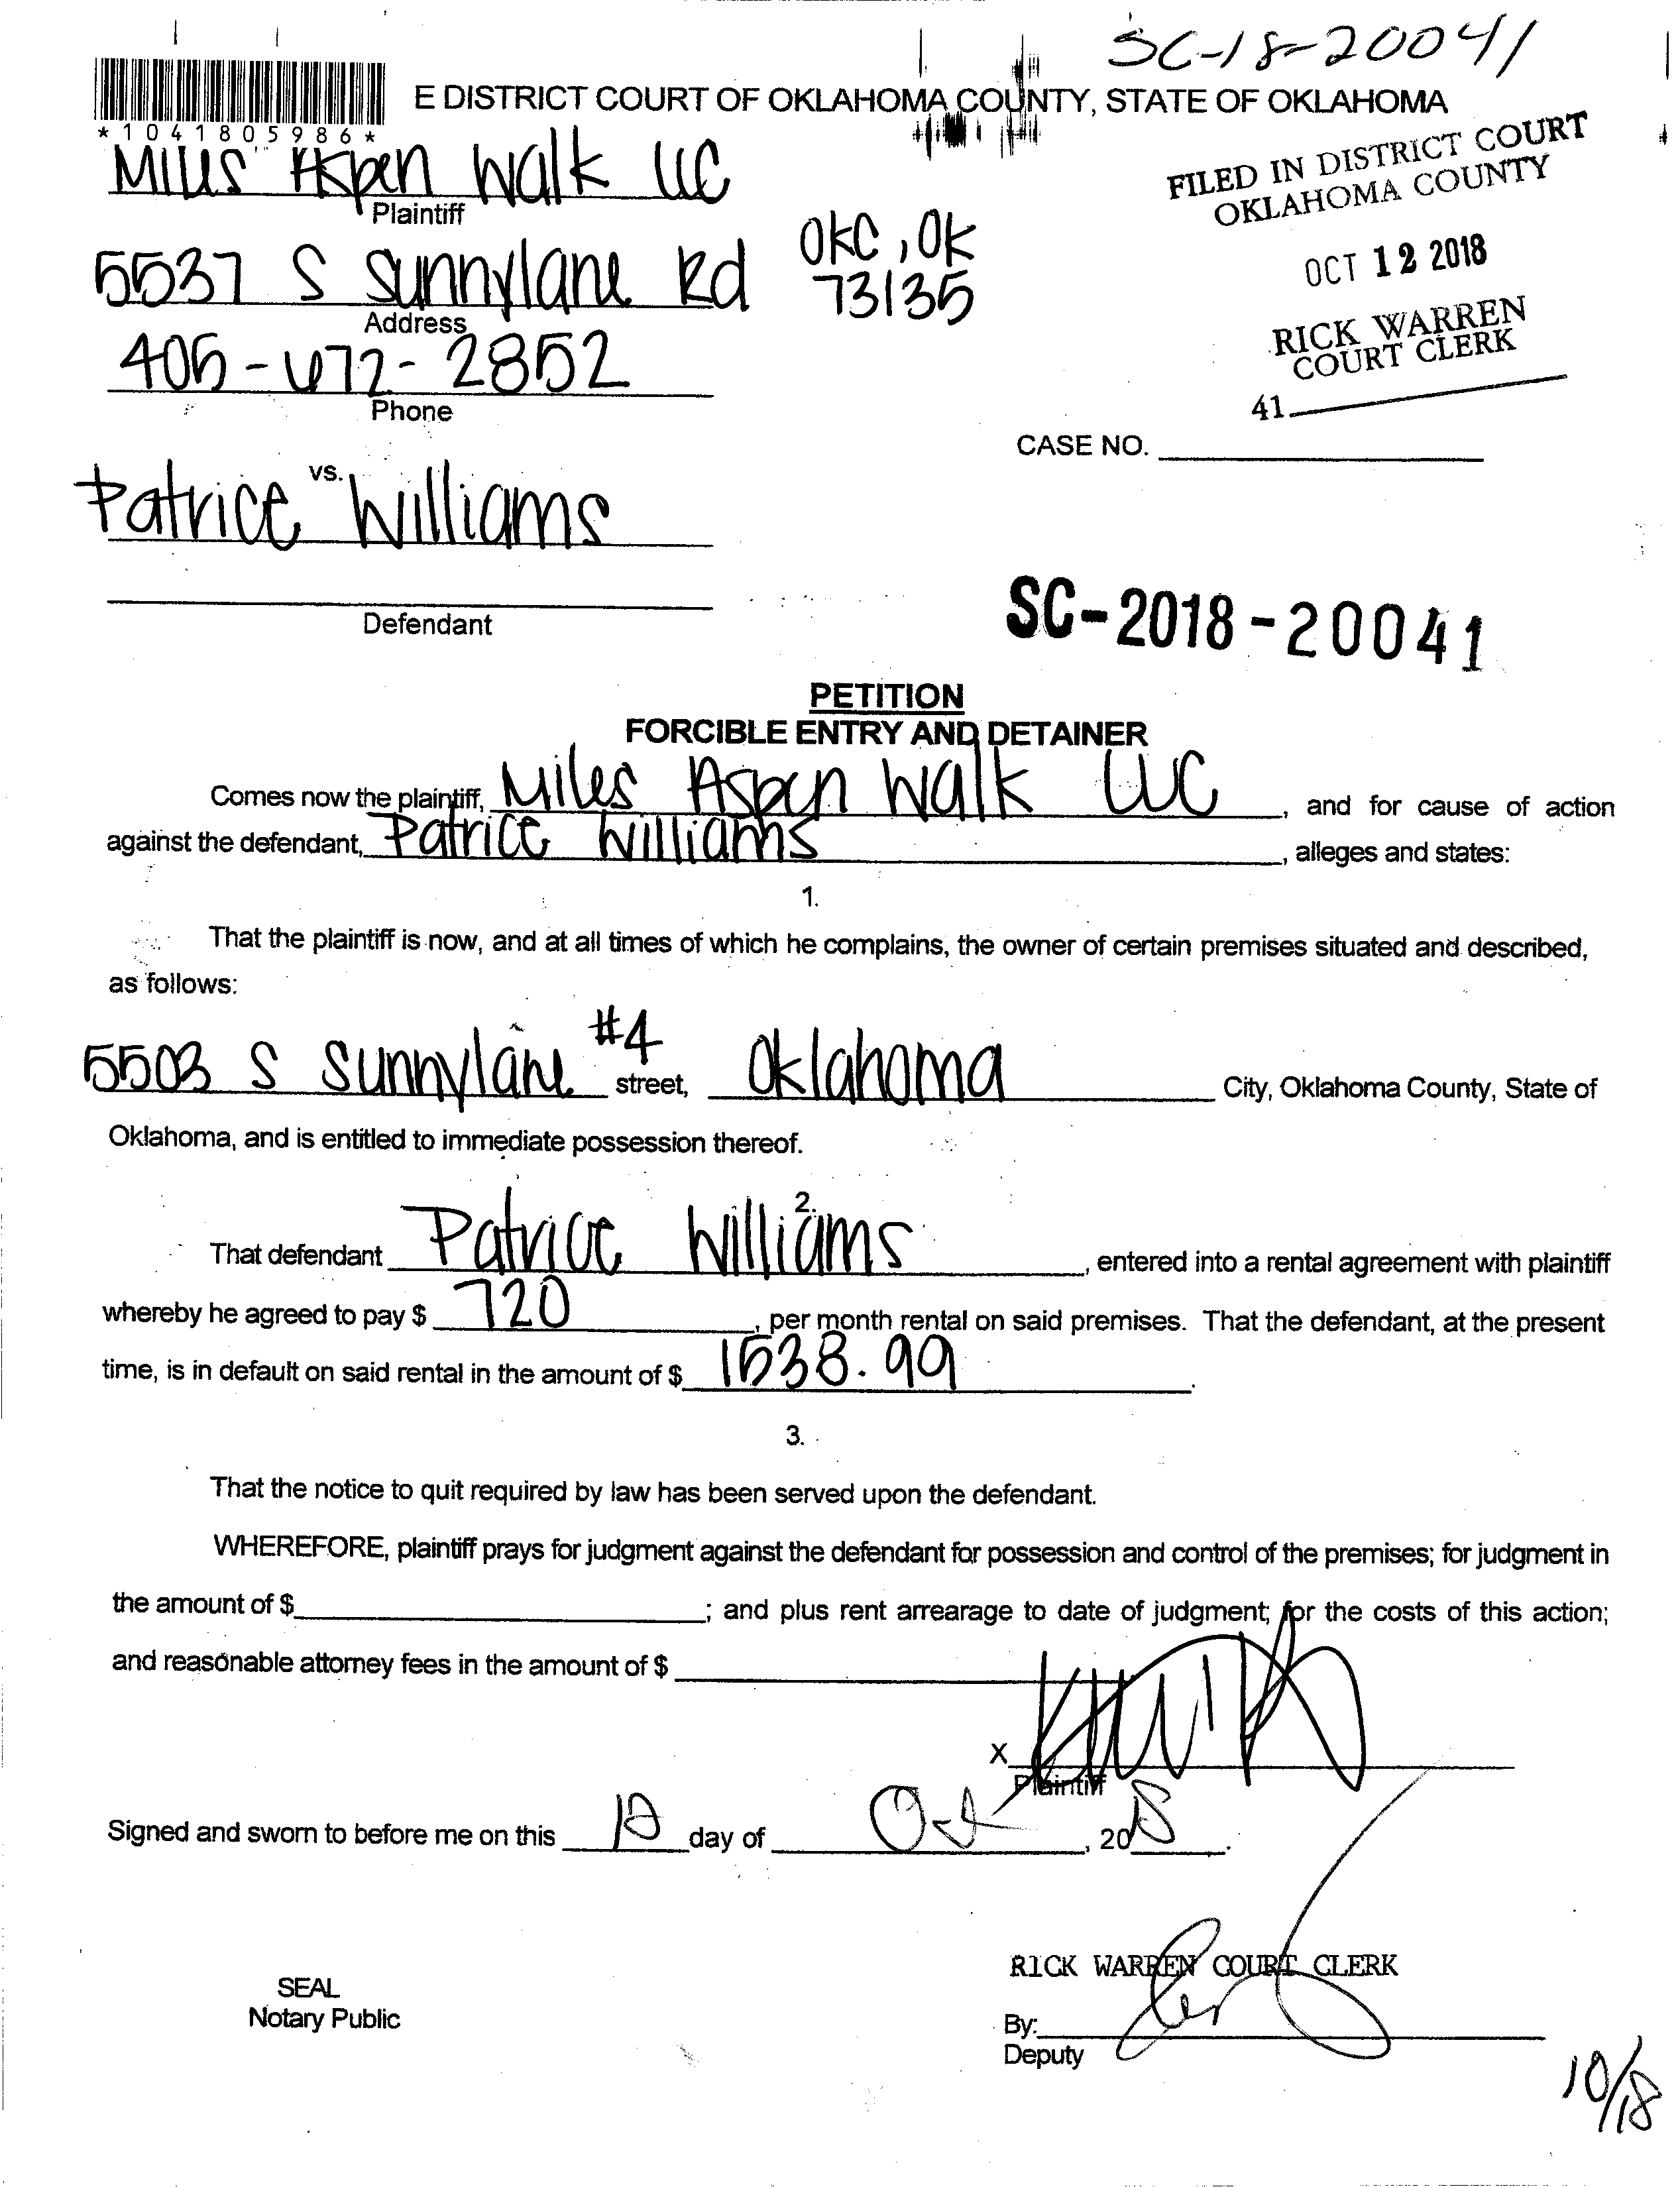 SC-18-20041
E DISTRICT COURT OF OKLAHOMA COUNTY, STATE OF OKLAHOMA
*1041805986*
Miles Aspen Walk LLC
Plaintiff
FILED IN DISTRICT COURT
OKLAHOMA COUNTY
5537 S Sunnylane Rd OKC, OK
73135
Address
OCT 12 2018
405-672-2852
Phone
RICK WARREN
COURT CLERK
41
CASE NO.
vs.
Patrice Williams
Defendant
SC-2018-20041
PETITION
FORCIBLE ENTRY AND DETAINER
Comes now the plaintiff, Miles Aspen Walk LLC, and for cause of action
against the defendant, Patrice Williams, alleges and states:
1.
That the plaintiff is now, and at all times of which he complains, the owner of certain premises situated and described,
as follows:
5503 S Sunnylane #4 street, Oklahoma City, Oklahoma County, State of
Oklahoma, and is entitled to immediate possession thereof.
2.
That defendant Patrice Williams, entered into a rental agreement with plaintiff
whereby he agreed to pay $ 720, per month rental on said premises. That the defendant, at the present
time, is in default on said rental in the amount of $ 1538.99.
3.
That the notice to quit required by law has been served upon the defendant.
WHEREFORE, plaintiff prays for judgment against the defendant for possession and control of the premises; for judgment in
the amount of $ ; and plus rent arrearage to date of judgment; for the costs of this action;
and reasonable attorney fees in the amount of $
X
Plaintiff
Signed and sworn to before me on this 12 day of Oct, 2018.
RICK WARREN COURT CLERK
SEAL
Notary Public
By:
Deputy
10/18